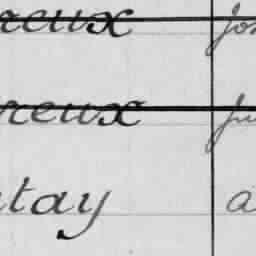 reux jos
reux ju
tay a